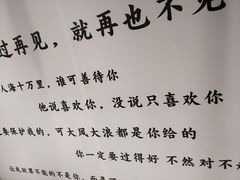 过再见，就再也不见
人海十万里，谁可善待你
他说喜欢你，没说只喜欢你
保护我的，可大风大浪都是你给的
你一定要过得好 不然对不